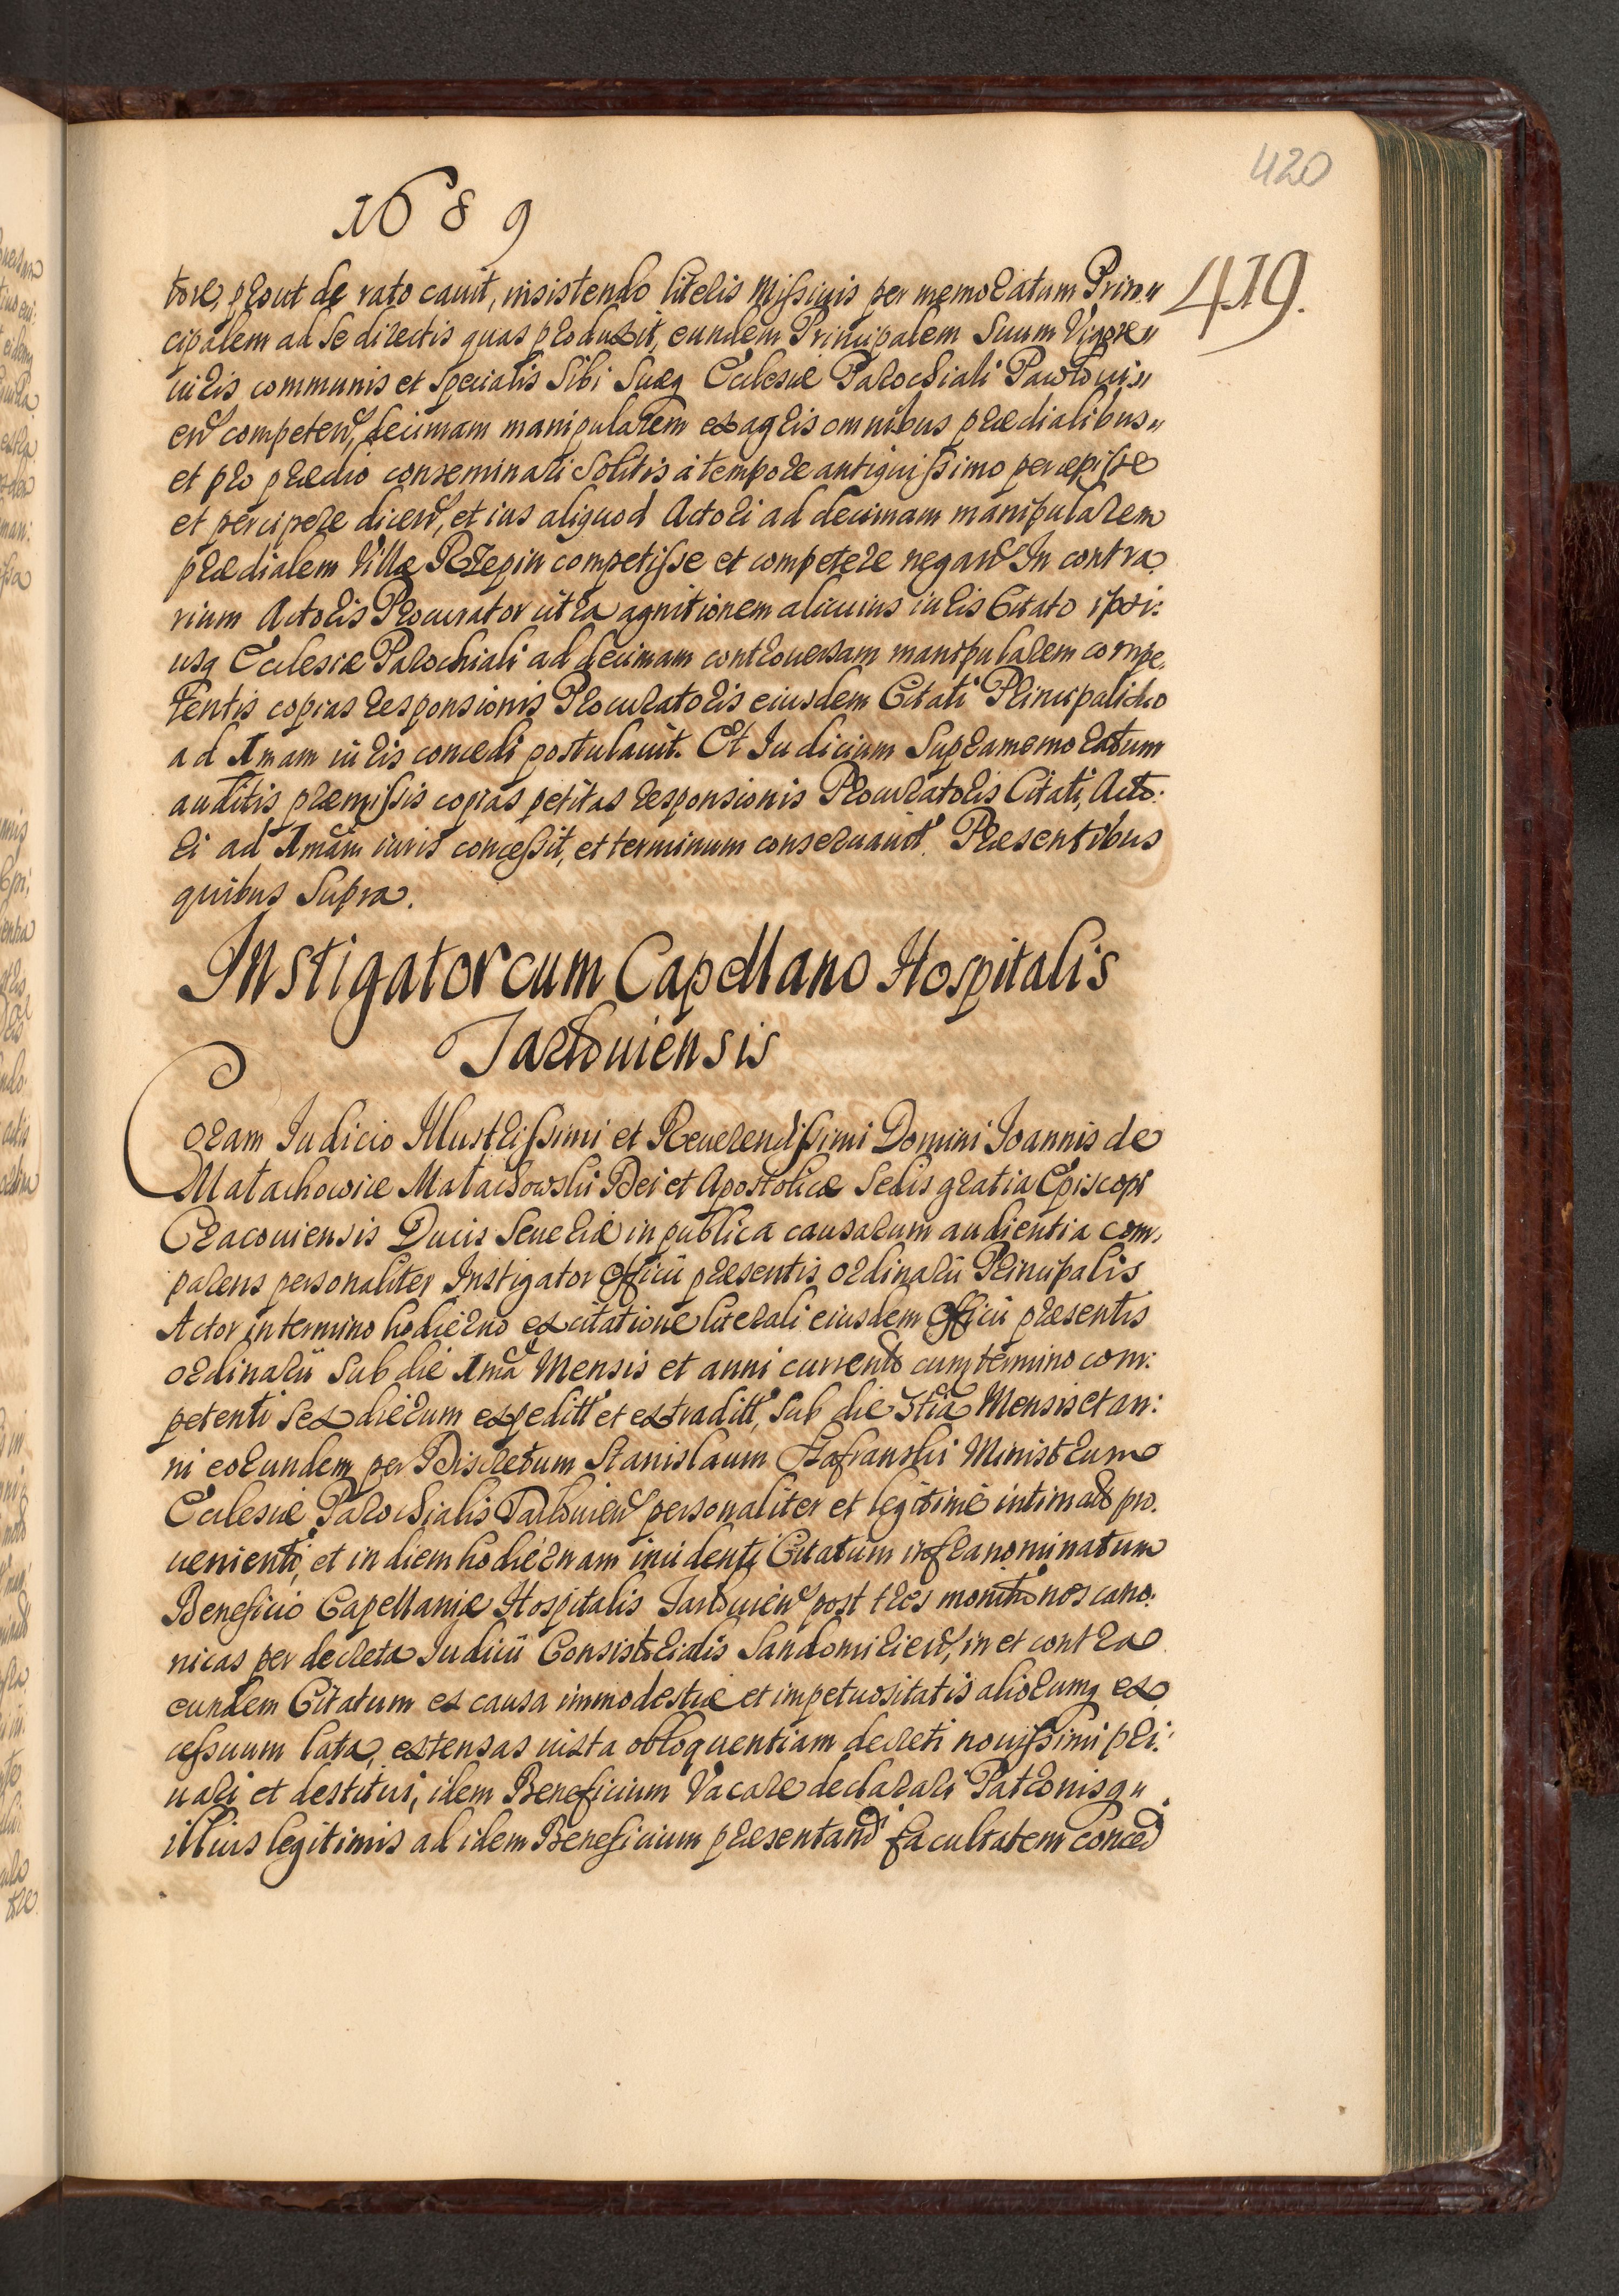 420
1689
419.
tore, prout de rato cauit, insistendo literis Missiuis per memoratum Prin„
cipalem ad se directis quas produxit, eundem Principalem Suum Vigore„
iuris communis et specialis Sibi Suæq Ecclesiæ Parochiali Pawłouis„
eñ competeñ, decimam manipularem ex agris omnibus prædialibus„
et pro prædio conseminari Solitis à tempore antiquissimo percepisse
et percipere diceñ, et ius aliquod Actori ad decimam manipularem
prædialem Villæ Rzepin competisse et competere negañ In contra
rium Actoris Procurator citra agnitionem alicuius iuris Citato ipsi:
usq Ecclesiæ Parochiali ad decimam controuersam manipularem compe,
tentis copias responsionis Procuratoris eiusdem Citati Principalicho
ad Imam iuris concedi postulauit. Et Iudicium Supramemoratum
auditis præmissis copias petitas responsionis Procuratoris Citati, Acto:
ri ad Imam iuris concessit, et terminum conseruauit. Præsentibus
quibus Supra.
Instigator cum Capellano Hospitalis
Tarłouiensis
Coram Iudicio Illustrissimi et Reuerendissimi Domini Ioannis de
Małachowice Małachowski Dei et Apostolicæ Sedis gratia Episcopi
Cracouiensis Ducis Seueriæ in publica causarum audientia com,
parens personaliter Instigator Officii præsentis ordinarii Principalis
Actor in termino hodierno ex citatione literali eiusdem Officii præsentis
ordinarii Sub die Imã Mensis et anni current cum termino com:
petenti Sex dierum expeditt et extraditt, Sub die 3tia Mensis et an:
ni eorundem per Discretum Stanislaum Szafranski Ministrum
Ecclesiæ Parochialis Tarłouieñ personaliter et legitimè intimato pro.
uenienti, et in diem hodiernam incidenti Citatum infranominatum
Beneficio Capellaniæ Hospitalis Tarłouieñ post tres monitiones cano:
nicas per decreta Iudicii Consistorialis Sandomirieñ, in et contra
eundem Citatum ex causa immodestiæ et impetuositatis aliorumq ex
cessuum lata, extensas iuxta obloquentiam decreti nouissimi pri:
uari et destitui, idem Beneficium Vacare declarari Patronisq„
illius legitimis ad idem Beneficium præsentandi facultatem conced